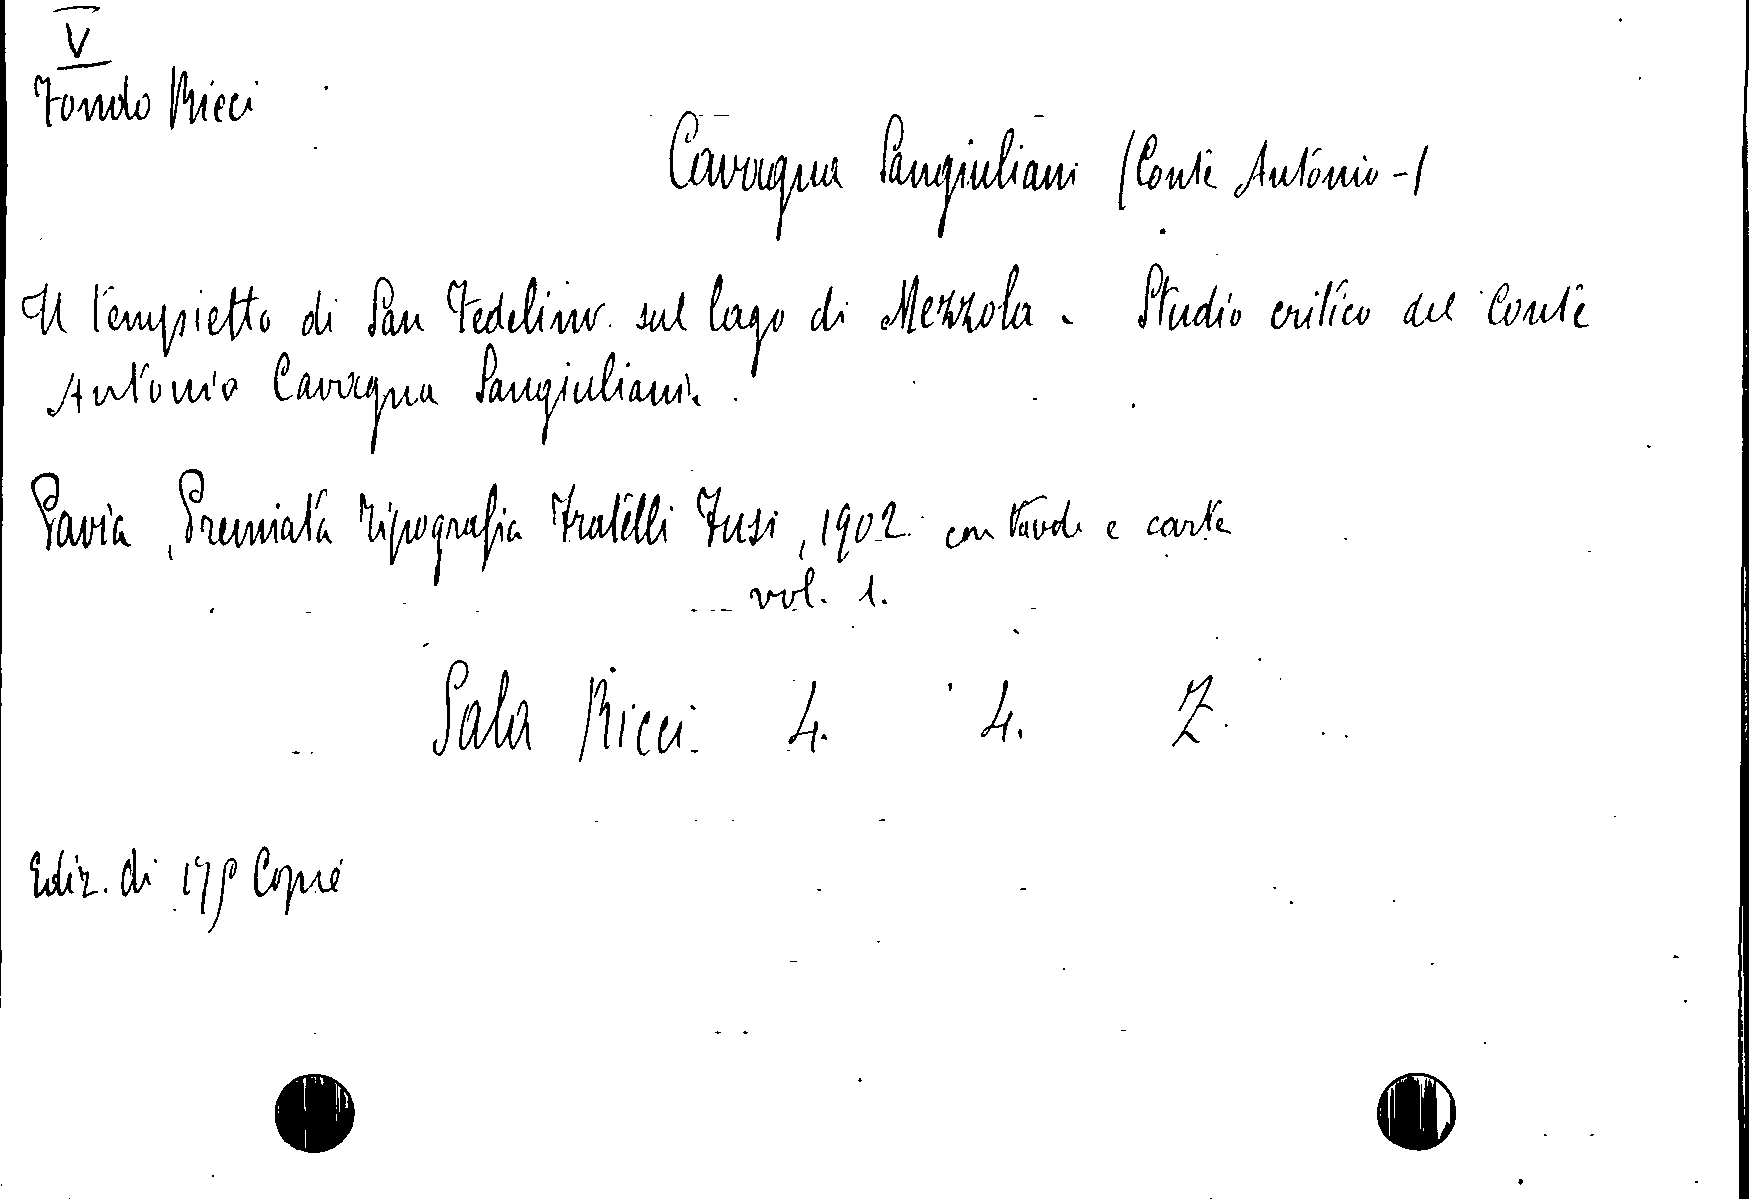 V
Fondo Ricci
Cavagna Sangiuliani (Conte Antonio-)
Il tempietto di San Fedelino sul lago di Mezzola. Studio critico del Conte
Antonio Cavagna Sangiuliani.
Pavia, Premiata Tipografia Fratelli Fusi, 1902 con tavole e carte
vol. 1.
Sala Ricci. 4. 4. Z.
Ediz. di 175 Copie